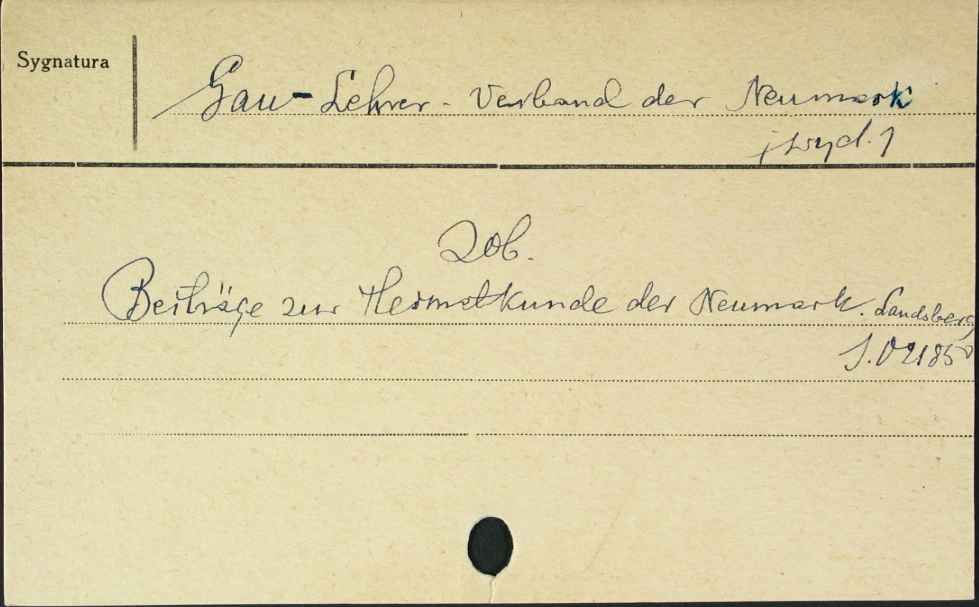 Sygnatura
Gau-Lehrer-Verband der Neumark
/wyd./
Zob.
Beiträge zur Heimatkunde der Neumark. Landsberg